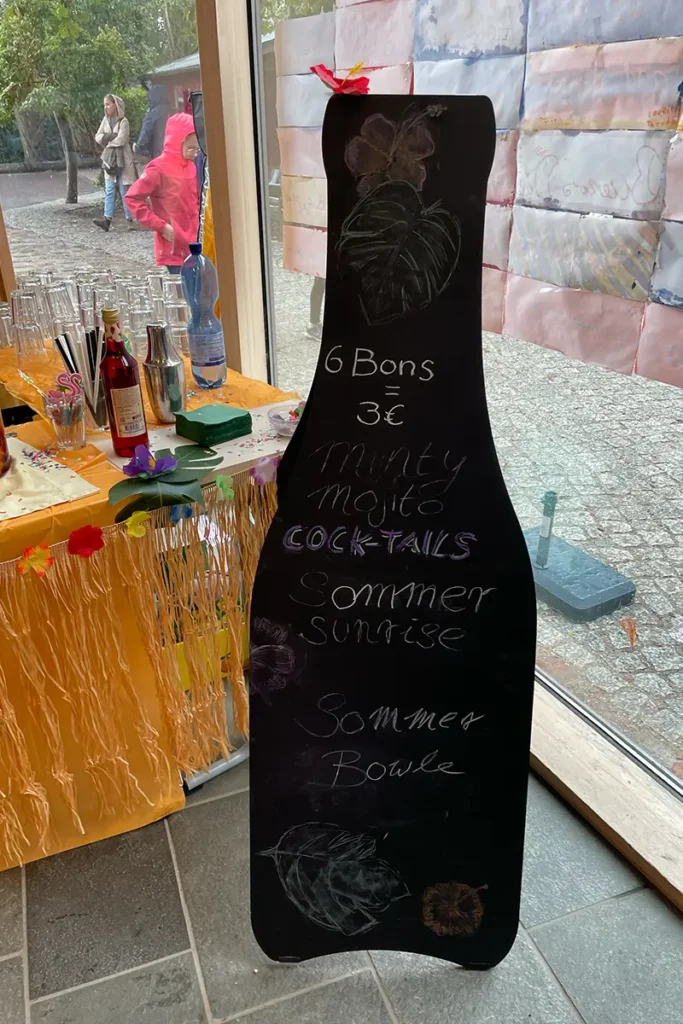 6 Bons
=
3€
Minty
Mojito
COCK-TAILS
Sommer
Sunrise
Sommer
Bowle